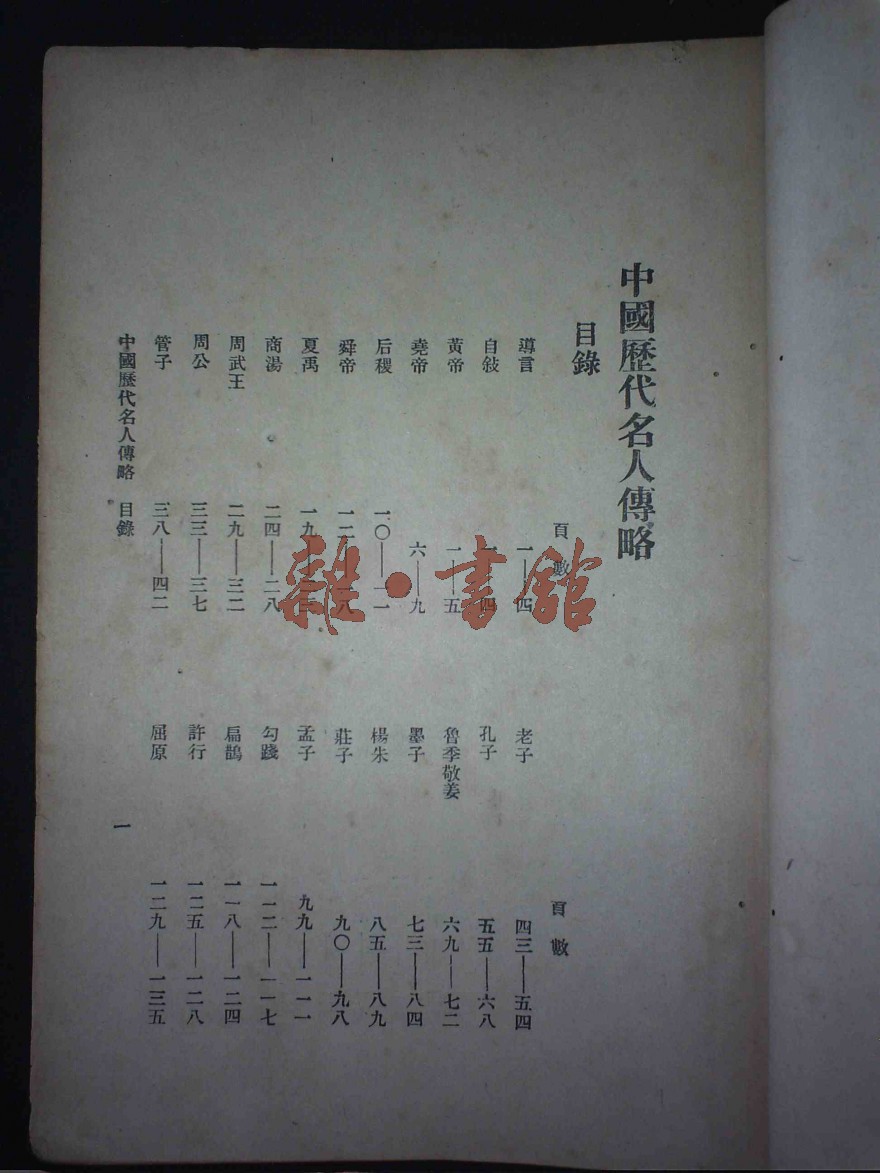 中國歷代名人傳略
目錄
頁數
導言 一——四
自敍 一——四
黃帝 一——五
堯帝 六——九
后稷 一〇——一一
舜帝 一二——一八
夏禹 一九——二三
商湯 二四——二八
周武王 二九——三二
周公 三三——三七
管子 三八——四二
頁數
老子 四三——五四
孔子 五五——六八
魯季敬姜 六九——七二
墨子 七三——八四
楊朱 八五——八九
莊子 九〇——九八
孟子 九九——一一一
勾踐 一一二——一一七
扁鵲 一一八——一二四
許行 一二五——一二八
屈原 一二九——一三五
中國歷代名人傳略 目錄 一
雜·書館